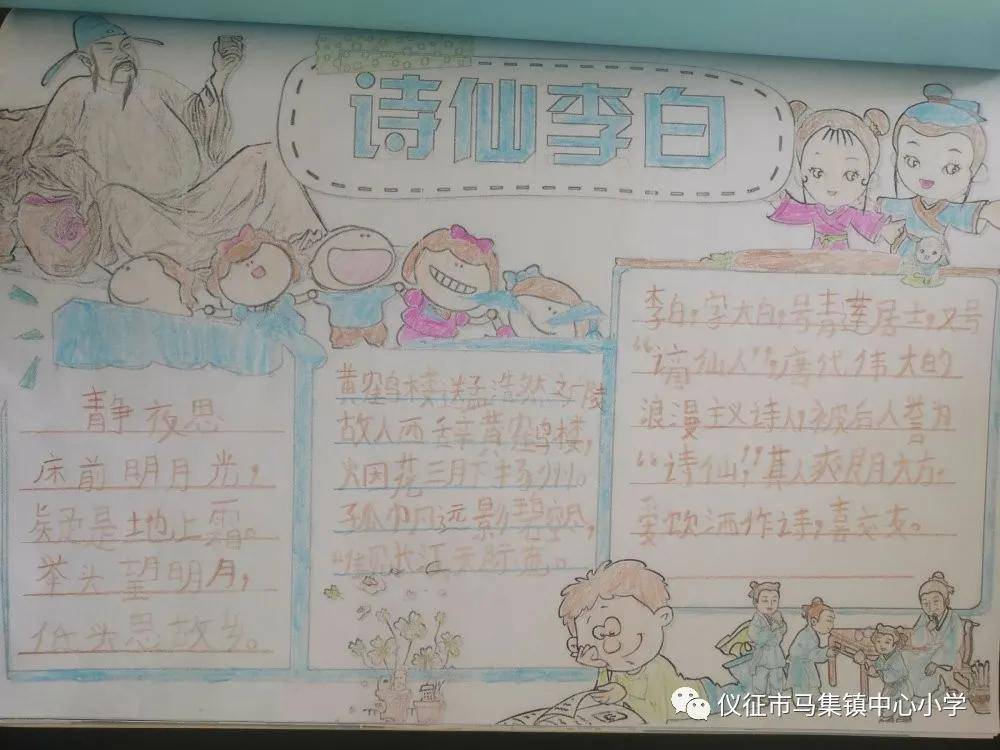 诗仙李白
静夜思
床前明月光，
疑是地上霜。
举头望明月，
低头思故乡。
黄鹤楼送孟浩然之广陵
故人西辞黄鹤楼，
烟花三月下扬州。
孤帆远影碧空尽，
唯见长江天际流。
李白，字太白，号青莲居士，又号
“谪仙人”，唐代伟大的
浪漫主义诗人，被后人誉为
“诗仙”，其人爽朗大方，
爱饮酒作诗，喜交友。
仪征市马集镇中心小学